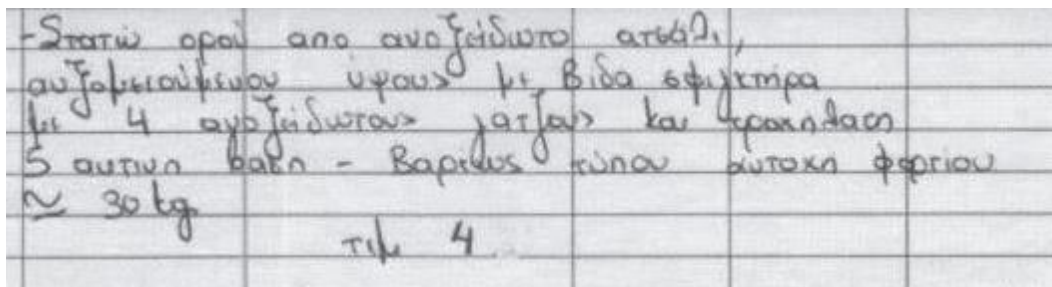 -Στατώ ορού απο ανοξείδωτο ατσάλι,
αυξομειούμενου ύψους με βιδα σφιγκτήρα
με 4 ανοξείδωτους γάτζους και τροχήλατη
5 ακτινη βαση - Βαρεως τύπου αντοχη φορτίου
≃ 30 kg.
τεμ 4